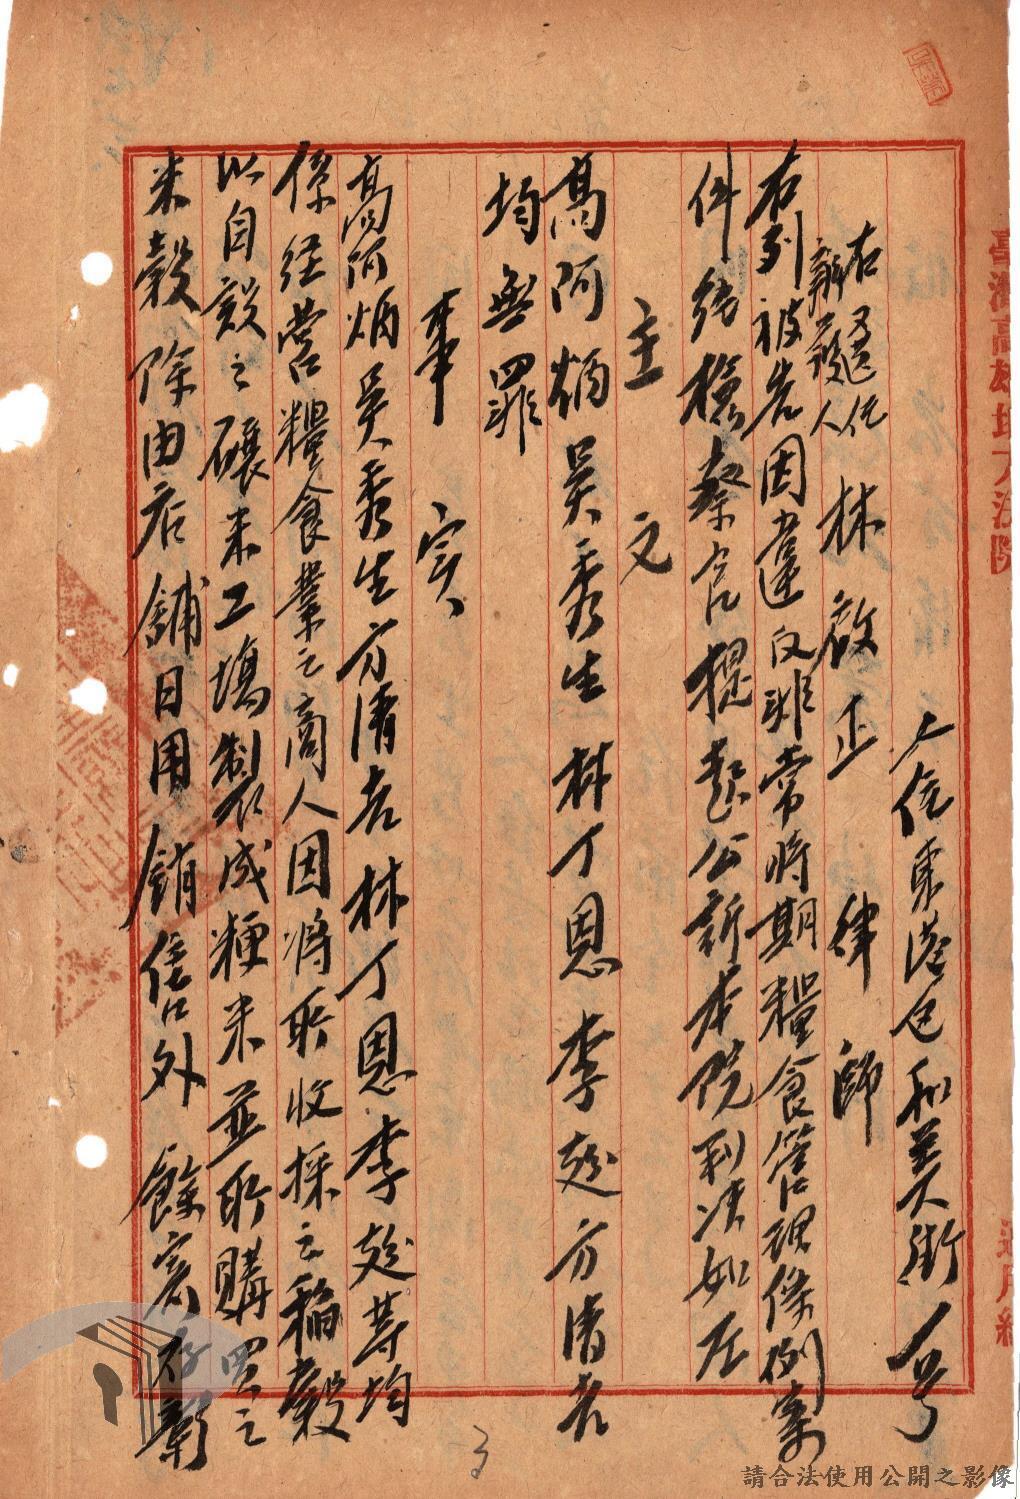 住東港區和美街一号
右選任辯護人 林啟正 律師
右列被告因違反非常時期糧食管理條例案
件經檢察官提起公訴本院判決如左
主文
高阿炳吳秀生林丁恩李趂方清老
均無罪
事實
高阿炳吳秀生方清老林丁恩李趂等均
係經營糧食業之商人因將所收採之稻穀
以自設之碾米工場製成粳米並所購買之
米穀除由店舖日用銷售外餘
臺灣高雄地方法院
請合法使用公開之影像